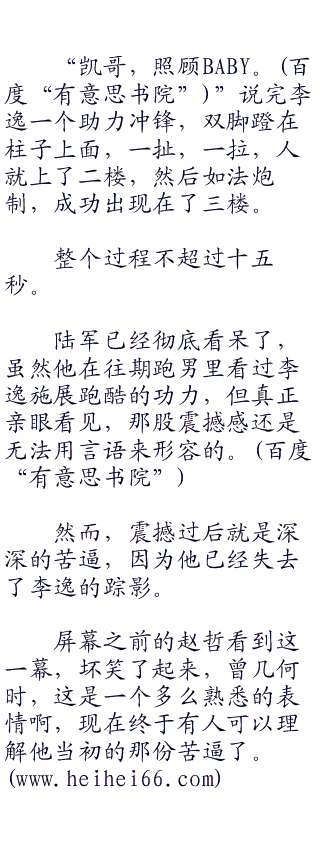 “凯哥，照顾BABY。(百
度“有意思书院”)”说完李
逸一个助力冲锋，双脚蹬在
柱子上面，一扯，一拉，人
就上了二楼，然后如法炮
制，成功出现在了三楼。
整个过程不超过十五
秒。
陆军已经彻底看呆了，
虽然他在往期跑男里看过李
逸施展跑酷的功力，但真正
亲眼看见，那股震撼感还是
无法用言语来形容的。(百度
“有意思书院”)
然而，震撼过后就是深
深的苦逼，因为他已经失去
了李逸的踪影。
屏幕之前的赵哲看到这
一幕，坏笑了起来，曾几何
时，这是一个多么熟悉的表
情啊，现在终于有人可以理
解他当初的那份苦逼了。
(www.heihei66.com)